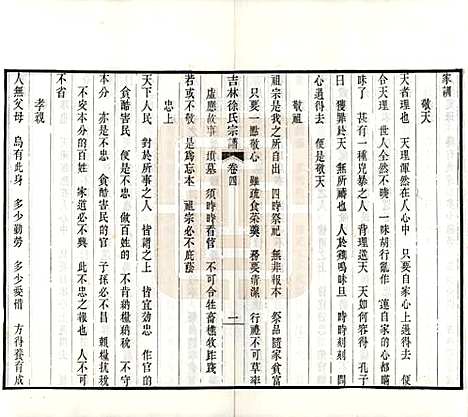 家訓
敬天
天者理也 天理渾然在人心中 只要自家心上過得去 便是
合天理 世人全然不曉 一味胡行亂作 連自家的心都瞞
昧了 甚有一種兇暴之人 背理逆天 天如何容得 孔子
曰 獲罪於天 無所禱也 人於雞鳴昧旦 時時刻刻 問
心過得去 便是敬天
敬祖
祖宗是我之所自出 四時祭祀 無非報本 祭品隨家貧富
只要一點敬心 雖疏食菜羹 務要清潔 行禮不可草率
吉林徐氏宗譜 卷四 一
虛應故事 墳墓 須時時看管 不可令牲畜樵牧踐踏
若或不敬 是爲忘本 祖宗必不庇蔭
忠上
天下人民 對於所事之人 皆謂之上 皆宜効忠 作官的
貪酷害民 便是不忠 做百姓的 不肯納糧當差 不守
本分 亦是不忠 貪酷害民的官 子孫必不昌 賴糧抗稅
不安本分的百姓 家道必不興 此不忠之報也 不可
不省
孝親
人無父母 烏有此身 多少勤勞 多少愛惜 方得養育成